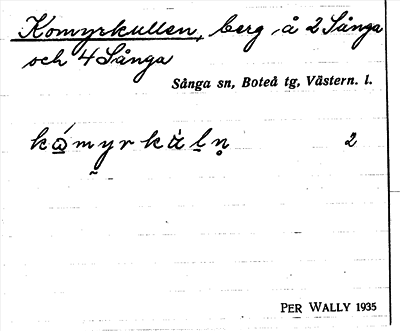 Komyrkullen, berg, å 2 Sånga
och 4 Sånga
Sånga sn, Boteå tg, Västern. l.
2
PER WALLY 1935